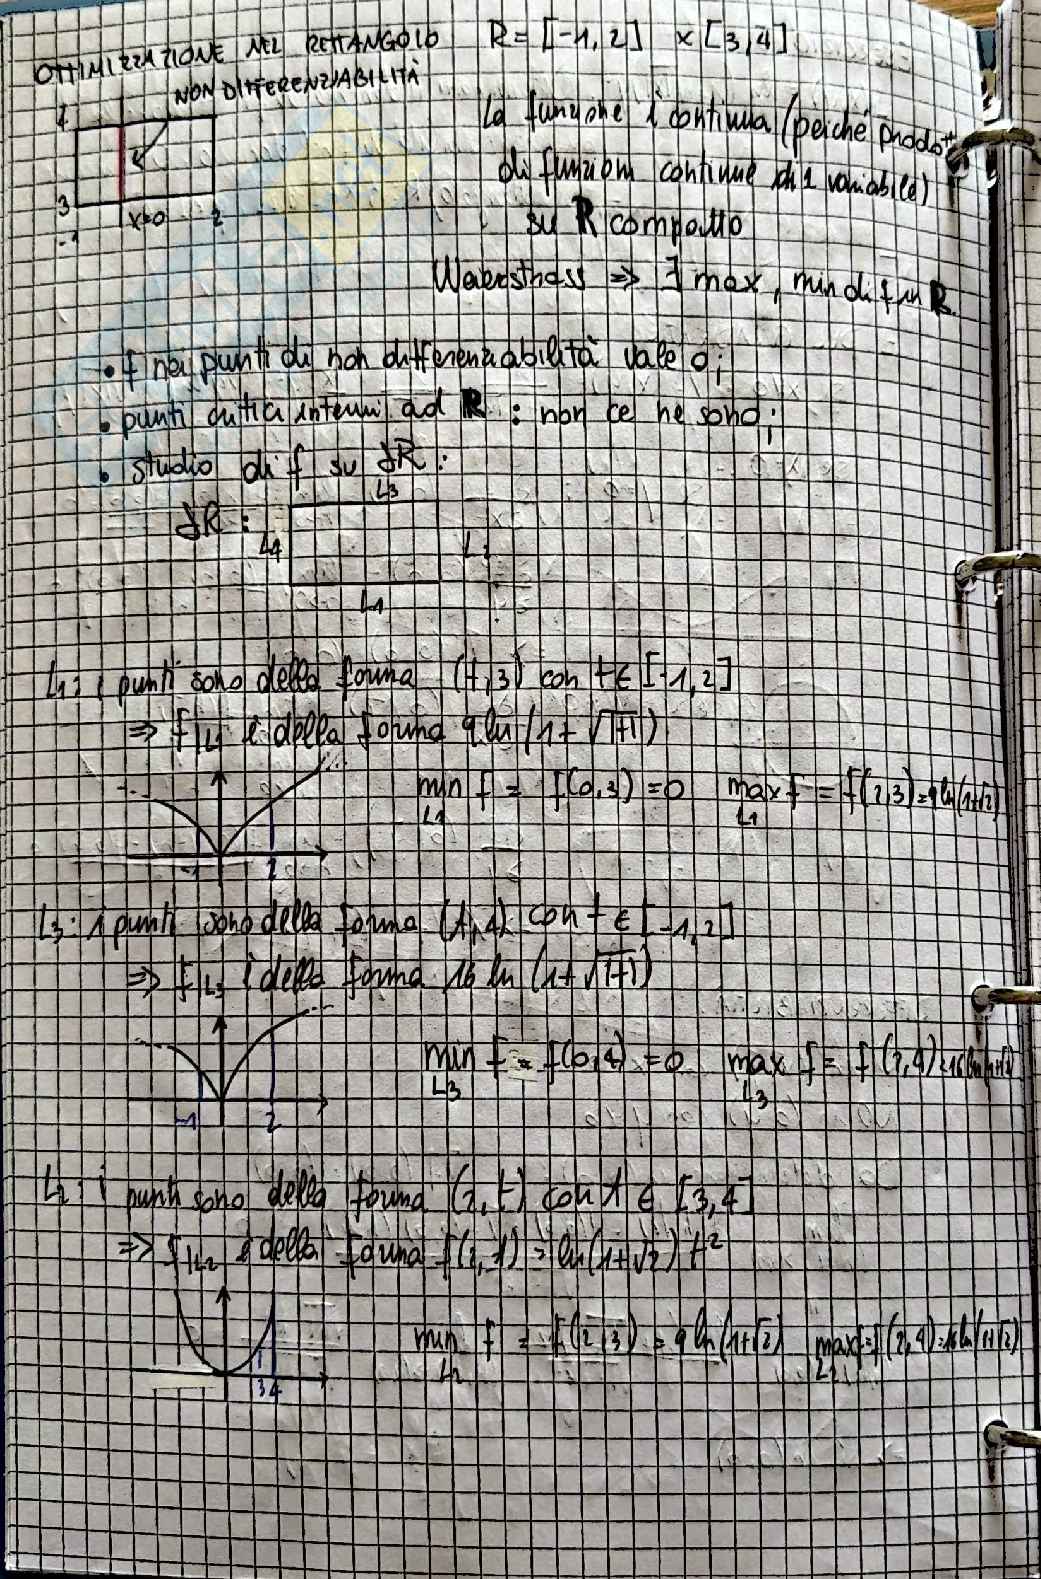 OTTIMIZZAZIONE NEL RETTANGOLO R = [-1, 2] × [3, 4]
NON DIFFERENZIABILITÀ
4
3
-1 x=0 2
La funzione è continua (perché prodott
di funzioni continue di 1 variabile)
su R compatto
Waierstrass ⇒ ∃ max, min di f in R.
• f nei punti di non differenziabilità vale 0;
• punti critici interni ad R : non ce ne sono;
• studio di f su ∂R :
∂R :
L3
L4 L2
L1
L1: i punti sono della forma (t, 3) con t ∈ [-1, 2]
⇒ f|L1 è della forma 9 ln (1 + √|t|)
min f = f(0,3) = 0 max f = f(2,3) = 9 ln(1+√2)
L1 L1
-1 2
L3: i punti sono della forma (t, 4) con t ∈ [-1, 2]
⇒ f|L3 è della forma 16 ln (1 + √|t|)
min f = f(0,4) = 0 max f = f(2,4) = 16 ln(1+√2)
L3 L3
-1 2
L2: i punti sono della forma (2, t) con t ∈ [3, 4]
⇒ f|L2 è della forma f(2, t) = ln(1+√2) t²
min f = f(2,3) = 9 ln(1+√2) max f = f(2,4) = 16 ln(1+√2)
L2 L2
3 4